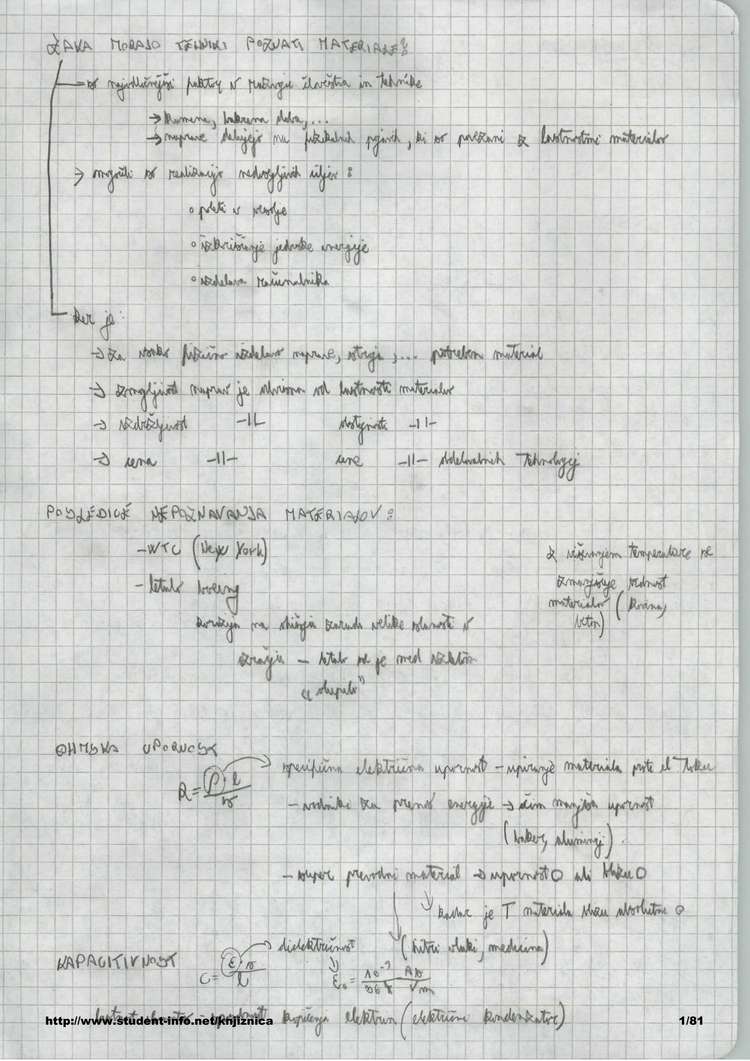 ZAKA MORAJO TEHNIKI POZNATI MATERIALE?
so najodločnejši faktor v razvoju človeštva in tehnike
→ kamena, bakrena doba, ...
→ naprave delujejo na fizikalnih pojavih, ki so povezani z lastnostmi materialov
→ omogočili so realizacijo nedosegljivih ciljev:
∘ poleti v vesolje
∘ izkoriščanje jedrske energije
∘ izdelava računalnika
Ker je:
→ za vsako fizično izdelavo naprave, stroja, ... potreben material
→ zmogljivost naprav je odvisna od lastnosti materialov
→ vzdržljivost -||- dostopnosti -||-
→ cena -||- cene -||- obdelovalnih tehnologij
POSLEDICE NEPOZNAVANJA MATERIALOV:
- WTC (New York)
z višanjem temperature se zmanjšuje trdnost materialov (kovina, beton)
- letalo boeing
korozija na ohišju zaradi velike slanosti v
ozračju – letalo se je med vzletom
"olupilo"
OHMSKA UPORNOST
R = ρ·l / S
specifična električna upornost – upiranje materiala proti el. toku
- vodniki za prenos energije → čim manjša upornost
(baker, aluminij)
- super prevodni material → upornost 0 ali blizu 0
kadar je T materiala blizu absolutne 0
(hitri vlaki, medicina)
KAPACITIVNOST
C = ε·S / l
dielektričnost
ε₀ = 10⁻⁹ / 36π As / Vm
kopičenja elektrin (električni kondenzator)
http://www.student-info.net/knjiznica
1/81